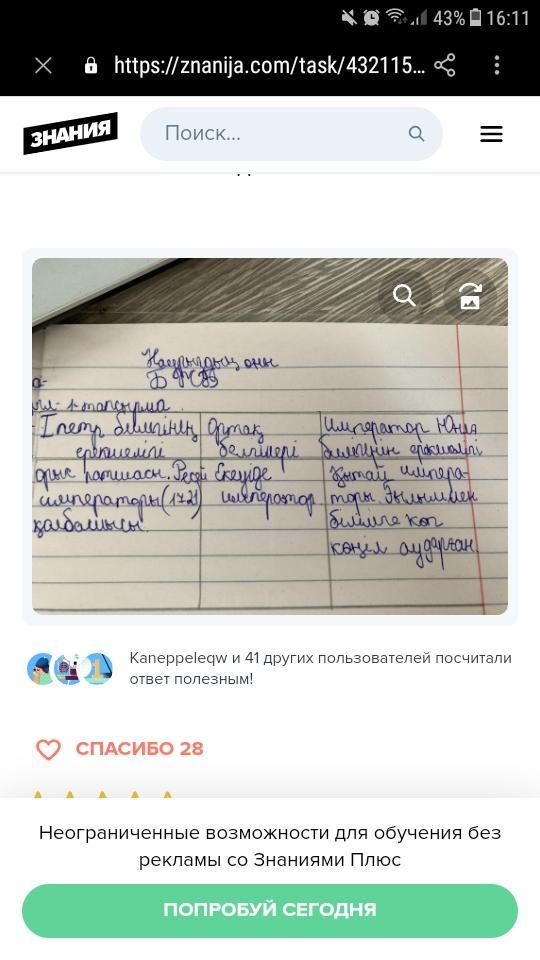 43% 16:11
https://znanija.com/task/432115...
ЗНАНИЯ
Поиск...
Наурыздың оны
БЖБ
1-тапсырма
І петр билігінің
ерекшелігі
орыс патшасы. Ресей
императоры (1721)
қолбасшысы.
Ортақ
белгілері
Екеуіде
император
Император
билігінің ерекшелігі
Қытай импера-
торы. Ғылыммен
білімге көп
көңіл аударған.
Kaneppeleqw и 41 других пользователей посчитали
ответ полезным!
СПАСИБО 28
Неограниченные возможности для обучения без
рекламы со Знаниями Плюс
ПОПРОБУЙ СЕГОДНЯ